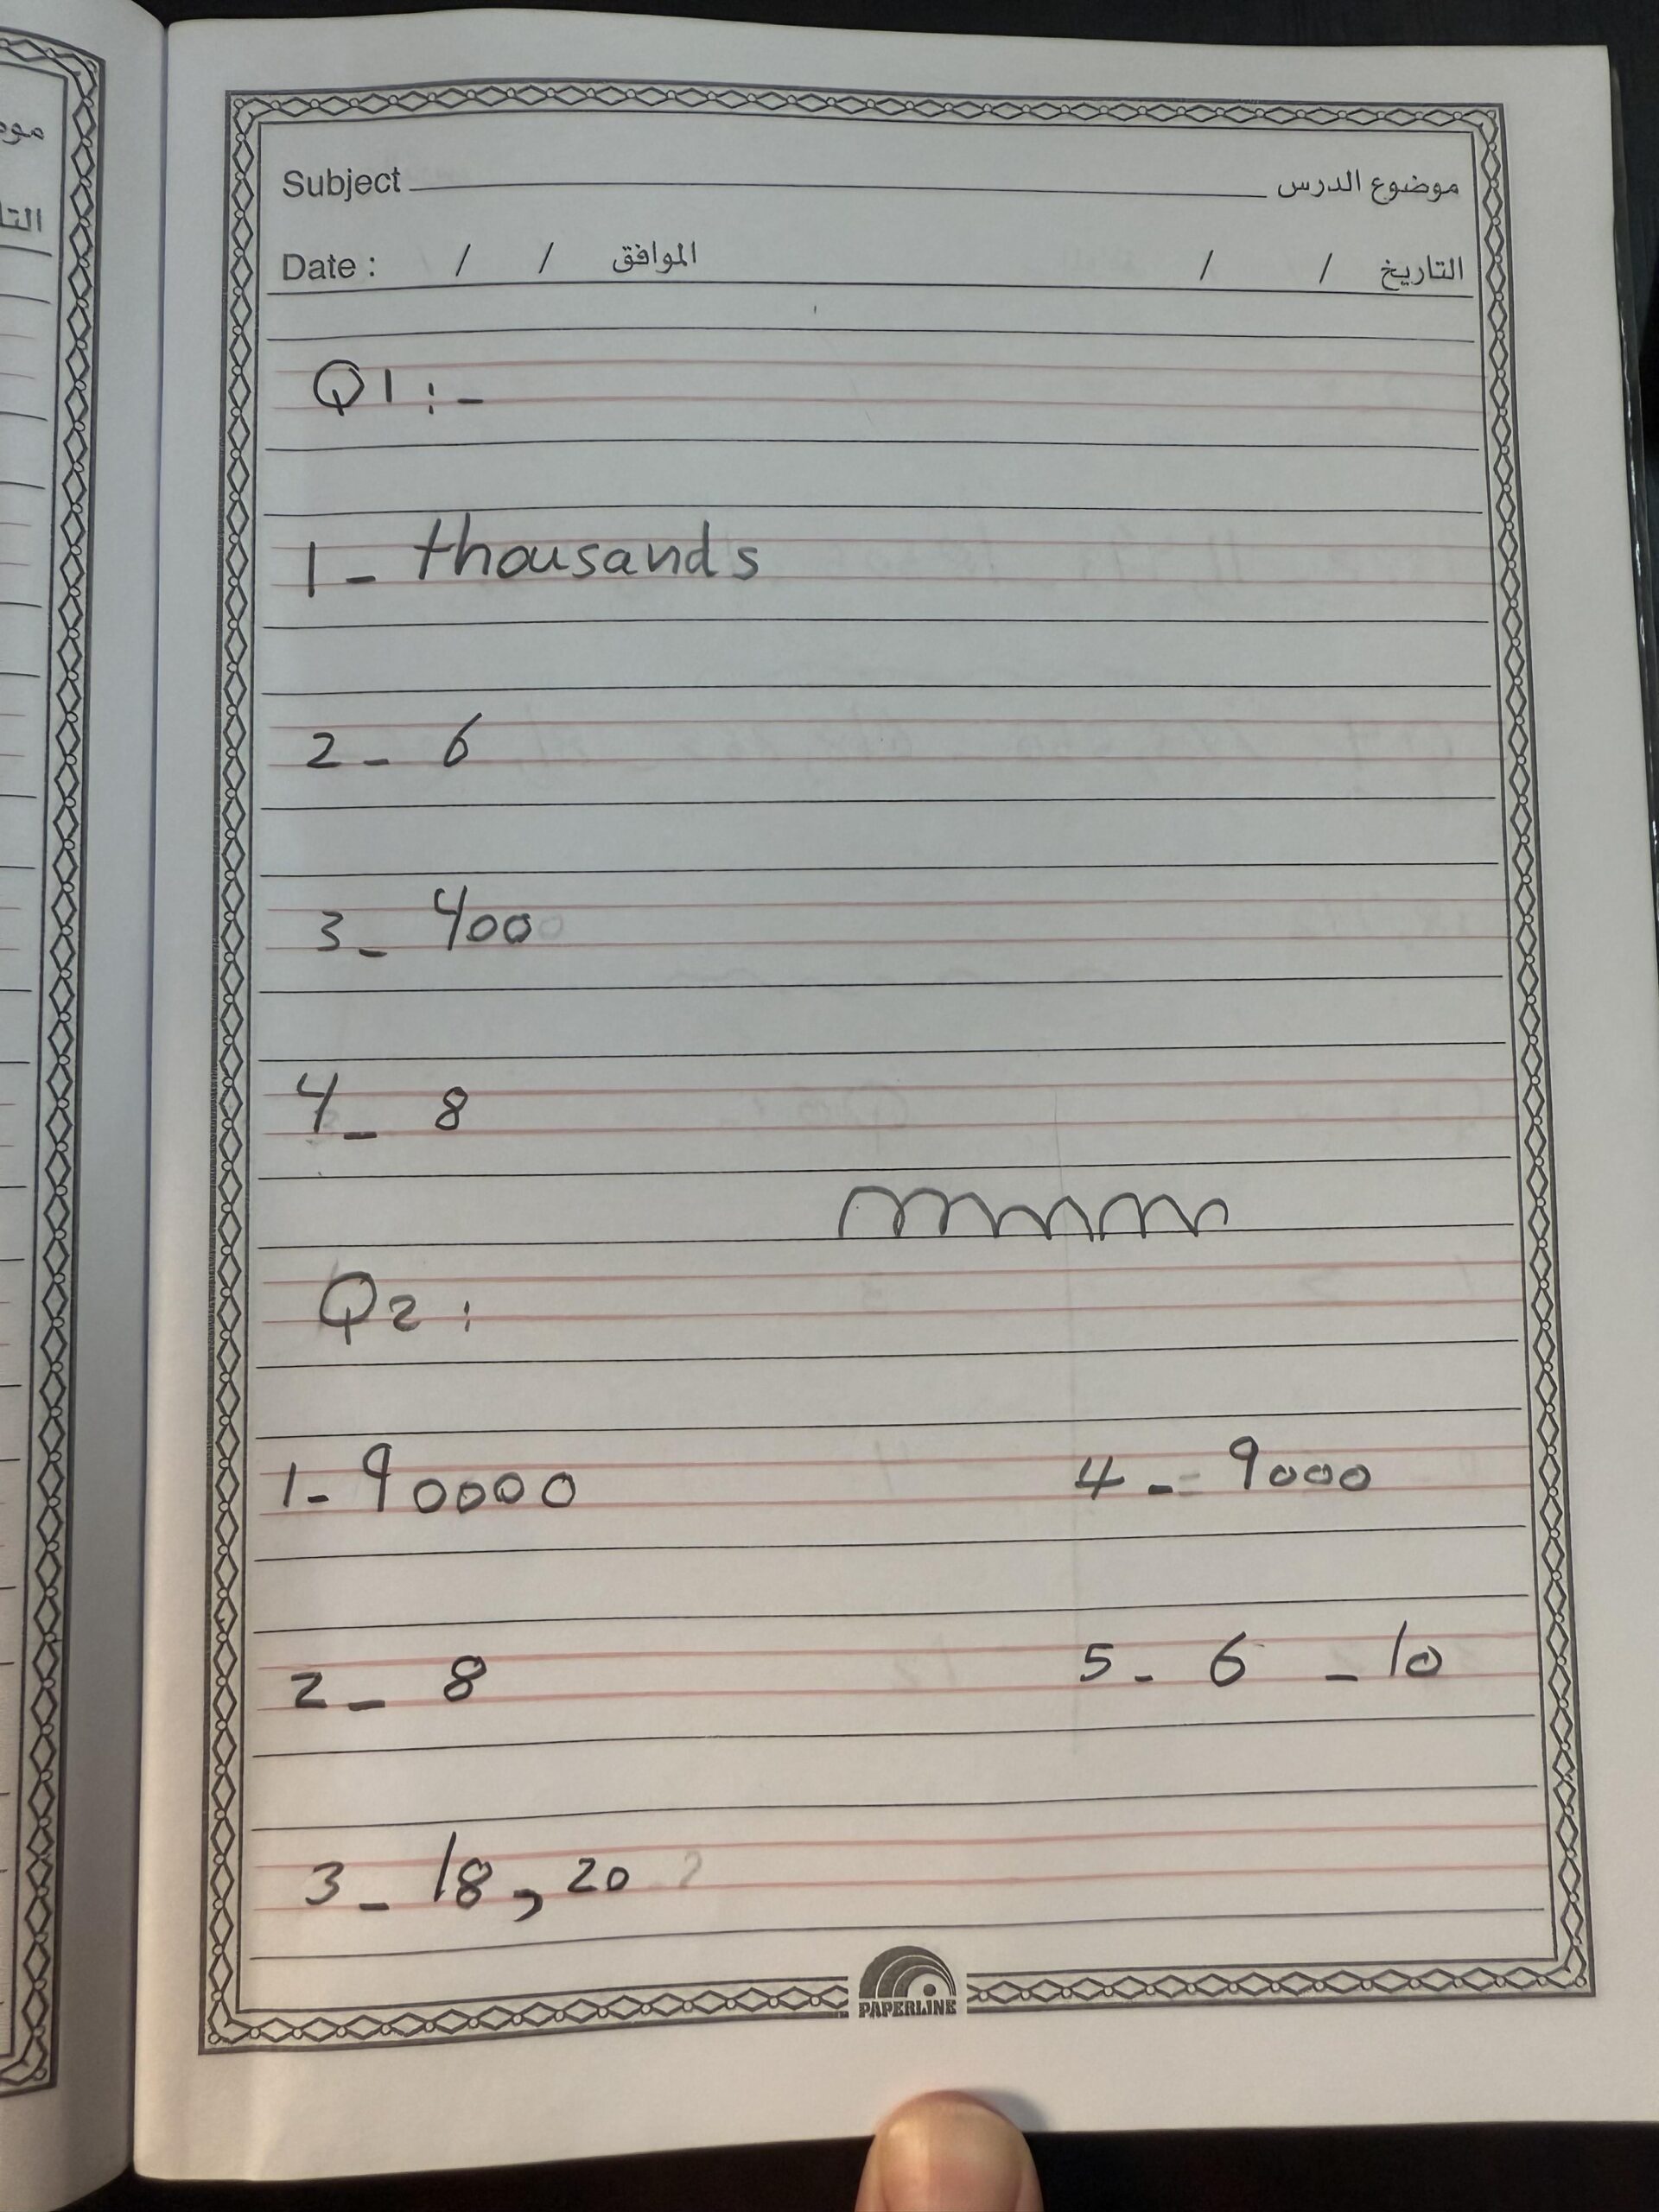 Subject موضوع الدرس
Date : / / الموافق / / التاريخ
Q1 :-
1 - thousands
2 - 6
3 - 400
4 - 8
Q2 :
1 - 90000
4 - 9000
2 - 8
5 - 6 - 10
3 - 18 , 20
PAPERLINE